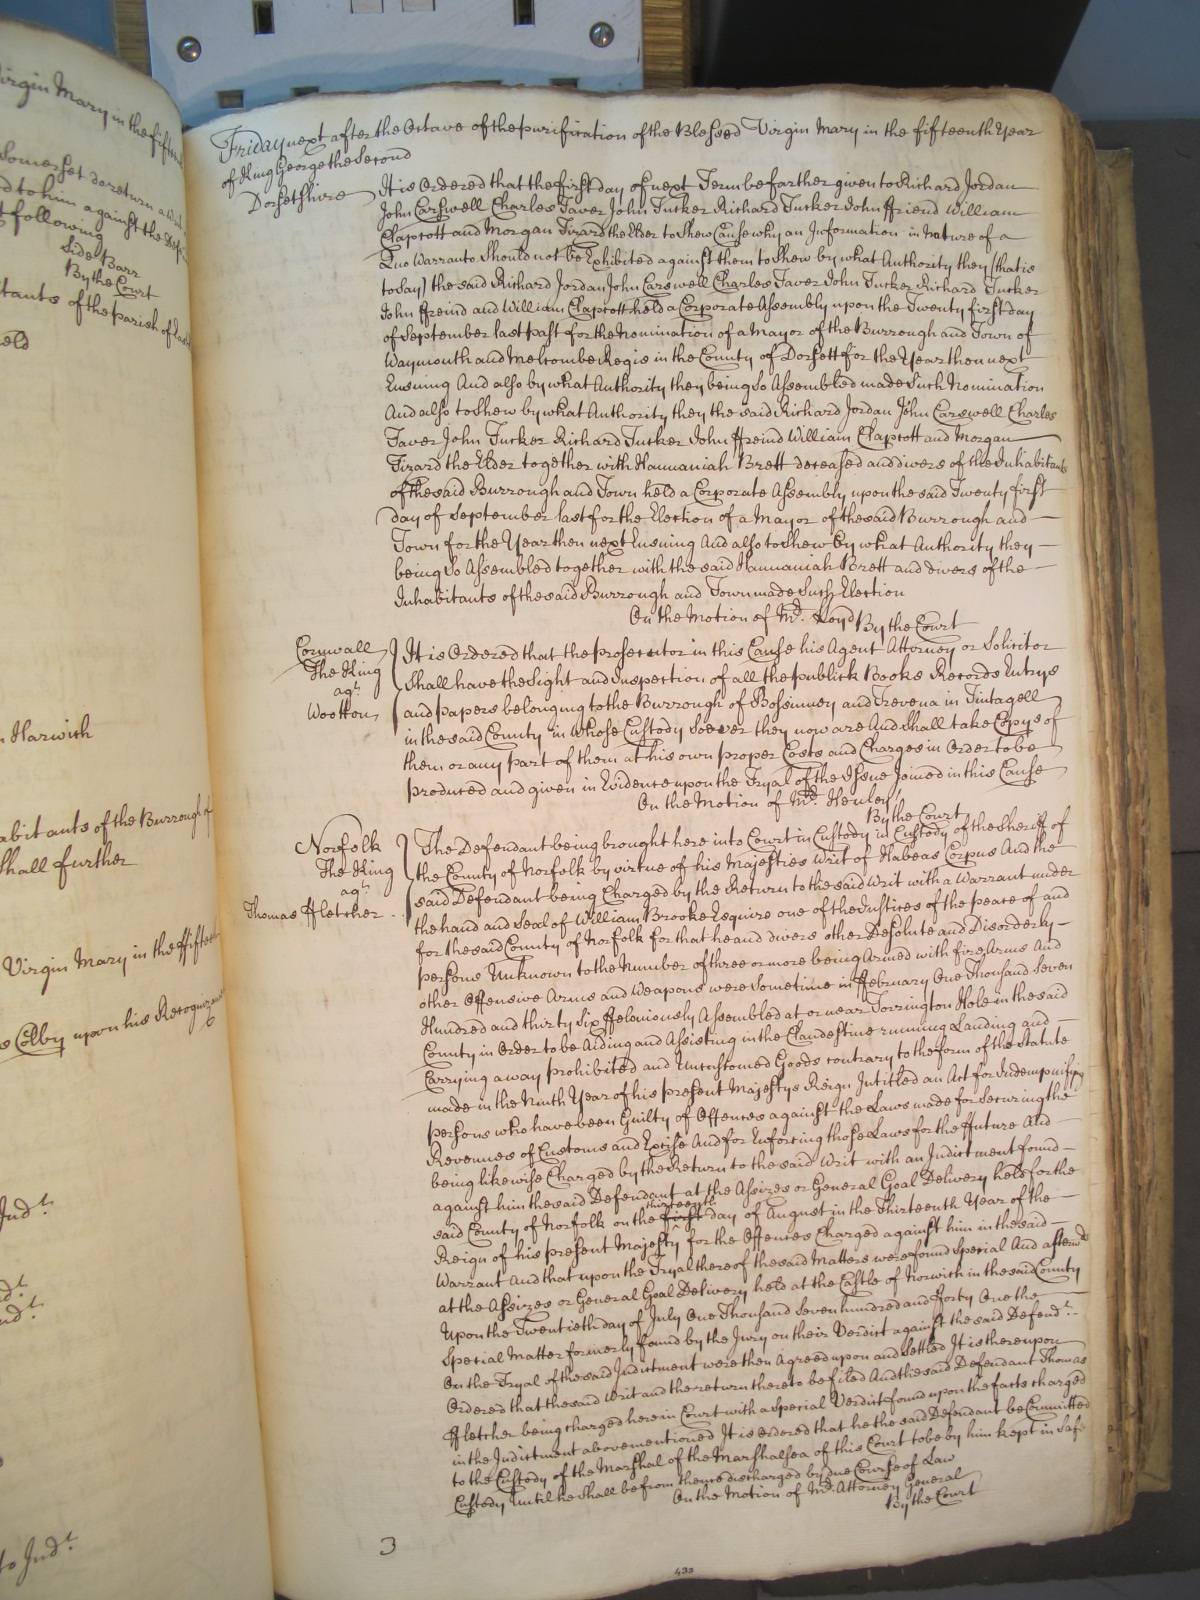 Virgin Mary in the fifteen
Somerset do return a Writ
to him against the Def
t following
Side Barr
By the Court
tants of the parish of
eld
Harwich
abitants of the Burrough of
Shall further
Virgin Mary in the ffifteen
s Colby upon his Recogniz
Jud.t
d.t
nd.t
to Jud.t
Friday next after the Octave of the purification of the Blessed Virgin Mary in the fifteenth Year
of King George the Second
Dorsetshire It is Ordered that the first day of next Term be farther given to Richard Jordan
John Carswell Charles Taver John Tucker Richard Tucker John ffriend William
Claprott and Morgan Tizard the Elder to Shew Cause why an Information in Nature of a
Quo Warranto Should not be Exhibited against them to Shew by what Authority they (that is
to say) the said Richard Jordan John Carswell Charles Taver John Tucker Richard Tucker
John ffreind and William Claprott held a Corporate Assembly upon the Twenty first day
of September last past for the Nomination of a Mayor of the Burrough and Town of
Waymouth and Melcombe Regis in the County of Dorsett for the Year then next
Ensuing And also by what Authority they being So Assembled made Such Nomination
And also to Shew by what Authority they the said Richard Jordan John Carswell Charles
Taver John Tucker Richard Tucker John ffreind William Claprott and Morgan
Tizard the Elder together with Hannaniah Brett deceased and divers of the Inhabitants
of the said Burrough and Town held a Corporate Assembly upon the said Twenty first
day of September last for the Election of a Mayor of the said Burrough and
Town for the Year then next Ensuing And also to Shew by what Authority they
being So Assembled together with the said Hannaniah Brett and divers of the
Inhabitants of the said Burrough and Town made Such Election
On the Motion of Mr. Loyd By the Court
Cornwall
The King
agt.
Wootton
It is Ordered that the prosecutor in this Cause his Agent Attorney or Solicitor
Shall have the Sight and Inspection of all the publick Books Records Entrys
and papers belonging to the Burrough of Bossinney and Trevena in Tintagell
in the said County in whose Custody Soever they now are And Shall take Copys of
them or any part of them at his own proper Costs and Charges in Order to be
produced and given in Evidence upon the Tryal of the Issue Joined in this Cause
On the Motion of Mr. Henley
By the Court
Norfolk
The King
agt.
Thomas ffletcher
The Defendant being brought here into Court in Custody in Custody of the Sheriff of
the County of Norfolk by virtue of his Majesties Writ of Habeas Corpus And the
said Defendant being Charged by the Return to the said Writ with a Warrant under
the hand and Seal of William Brooke Esquire one of the Justices of the peace of and
for the said County of Norfolk for that he and divers other Desolute and Disorderly
persons Unknown to the Number of three or more being Armed with fire Arms And
other Offensive Arms and Weapons were Sometime in ffebruary One Thousand Seven
Hundred and thirty Six ffeloniously Assembled at or near Torrington Hole in the said
County in Order to be Aiding and Assisting in the Clandestine running Landing and
Carrying away prohibited and Uncustomed Goods contrary to the form of the Statute
made in the Ninth Year of his present Majestys Reign Intitled an Act for Indempnifying
persons who have been Guilty of Offences against the Laws made for Securing the
Revenues of Customs and Excise And for Enforcing those Laws for the ffuture And
being likewise Charged by the Return to the said Writ with an Indictment found
against him the said Defendant at the Assizes or General Goal Delivery held for the
said County of Norfolk on the first thirteenth day of August in the Thirteenth Year of the
Reign of his present Majesty for the Offences Charged against him in the said
Warrant And that upon the Tryal thereof the said Matters were found Special And afterwds
at the Assizes or General Goal Delivery held at the Castle of Norwich in the said County
Upon the Twentieth day of July One Thousand Seven hundred and fforty One the
Special Matter formerly found by the Jury on their Verdict against the said Defend.t
On the Tryal of the said Indictment were then Agreed upon and Settled It is thereupon
Ordered that the said Writ and the return thereto be filed And the said Defendant Thomas
ffletcher being charged here in Court with a Special Verdict found upon the facts charged
in the Indictment abovementioned It is ordered that he the said Defendant be Committed
to the Custody of the Marshal of the Marshalsea of this Court to be by him kept in Safe
Custody Until he Shall be from thence discharged by due Course of Law
On the Motion of Mr. Attorney General
By the Court
3
433